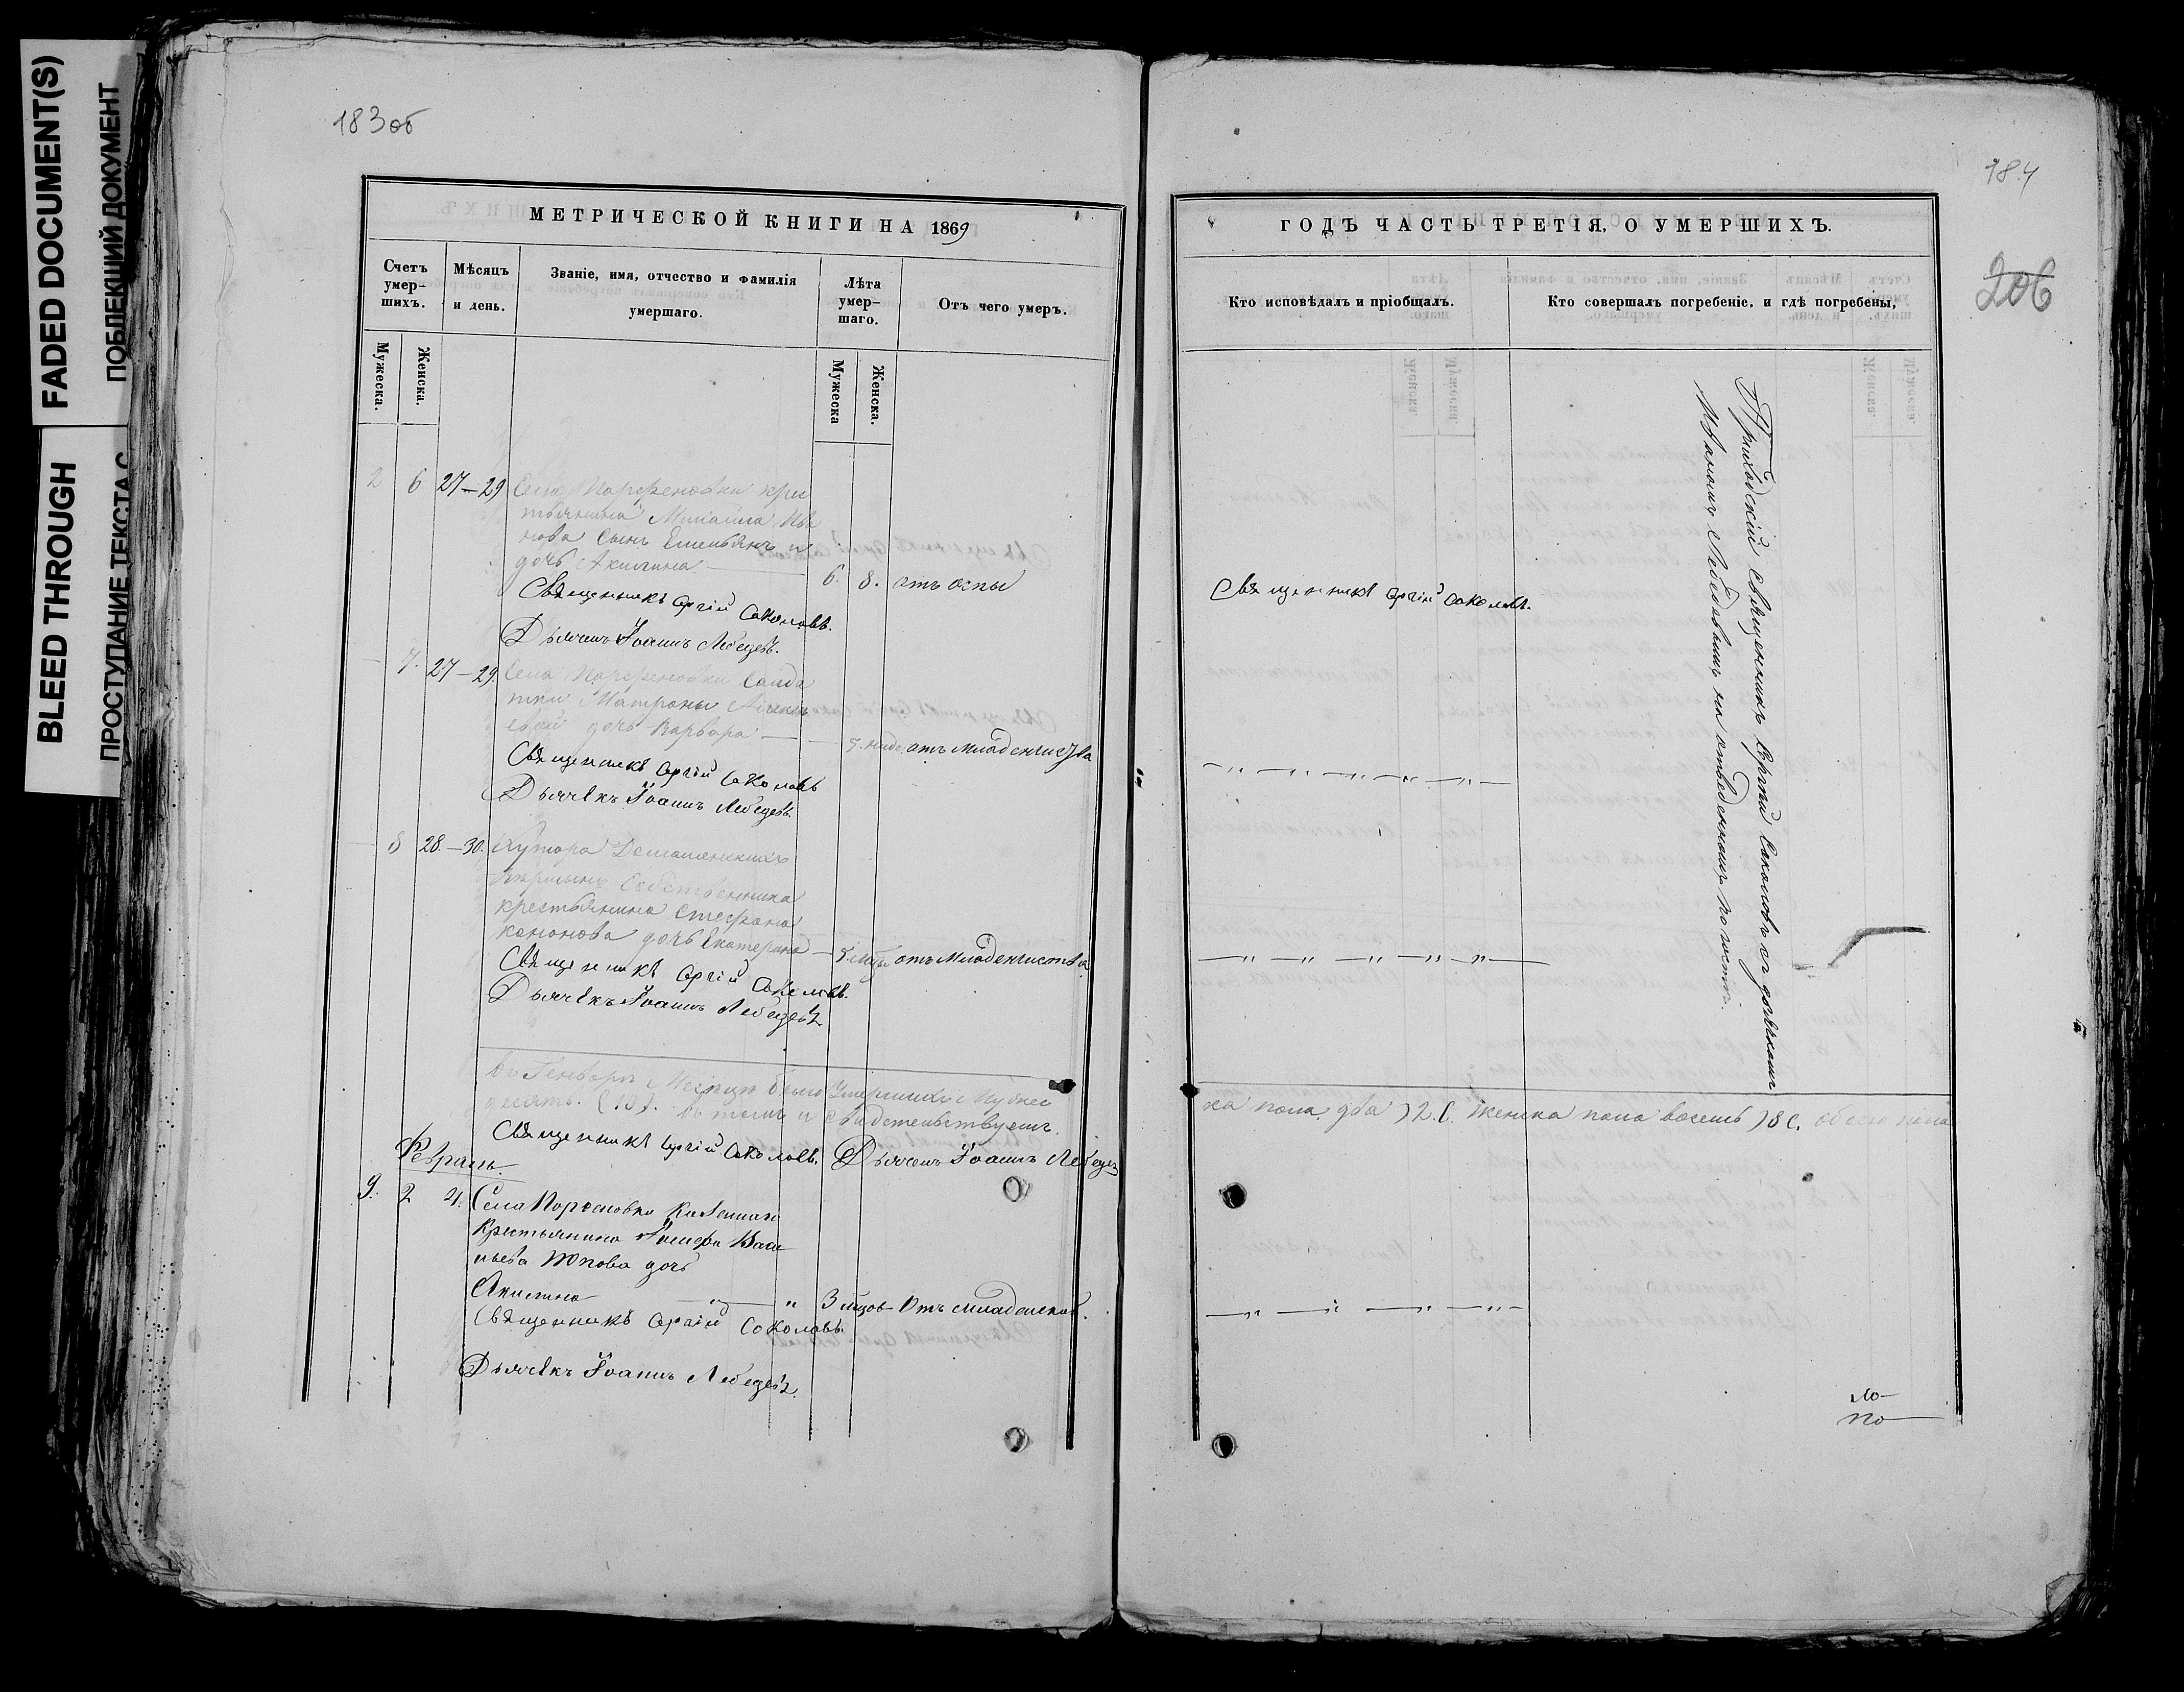 FADED DOCUMENT(S)
ПОБЛЕКШИЙ ДОКУМЕНТ
BLEED THROUGH
ПРОСТУПАНИЕ ТЕКСТА С
183об
МЕТРИЧЕСКОЙ КНИГИ НА 1869
Счетъ умер-
шихъ.
Мѣсяцъ
и день.
Званіе, имя, отчество и фамилія
умершаго.
Лѣта
умер-
шаго.
Отъ чего умеръ.
Мужеска.
Женска.
Мужеска
Женска.
2 6 27–29 Села Парфеновки крес
тьянина Михаила Ива
нова сынъ Емельянъ и
дочь Акилина — 6. 8. отъ оспы
Священникъ Сергій Соколовъ.
Дьячекъ Іоаннъ Лебедевъ.
— 7. 27–29. Села Парфеновки Салда
тки Матроны
евой дочь Варвара — 5. неде. отъ младенчества
Священникъ Сергій Соколовъ
Дьячекъ Іоаннъ Лебедевъ.
— 8 28.–30. Хутора
Собственника
крестьянина Стефана
Кононова дочь Екатерина — 5. отъ младенчества
Священникъ Сергій Соколовъ.
Дьячекъ Іоаннъ Лебедевъ
Въ Генварѣ Месяцѣ было Умершихъ Мужес
десять. (10). въ томъ и свидетельствуемъ.
Священникъ Сергій Соколовъ. Дьячекъ Іоаннъ Лебедев
Февраль.
9. 2 4. Села Парфеновки
Крестьянина Васи
льева Попова дочь
Акилина — „ — „ 3 мцов Отъ младенческой.
Священникъ Сергій Соколовъ.
Дьячекъ Іоаннъ Лебедевъ.
184
206
ГОДЪ ЧАСТЬ ТРЕТІЯ, О УМЕРШИХЪ.
Кто исповѣдалъ и пріобщалъ.
Кто совершалъ погребеніе, и гдѣ погребены,
Священникъ Сергій Соколовъ.
Приходскій Священникъ Сергій Соколовъ съ дьячкомъ
Иваномъ Лебедевымъ на отведенномъ погостѣ.
— „ — „ — „ — „ — „ —
— „ — „ — „ — „ — „ —
ка пола два )2.( женска пола восемь )8(. обоего пола
— „ — „ — „ — „ —
по